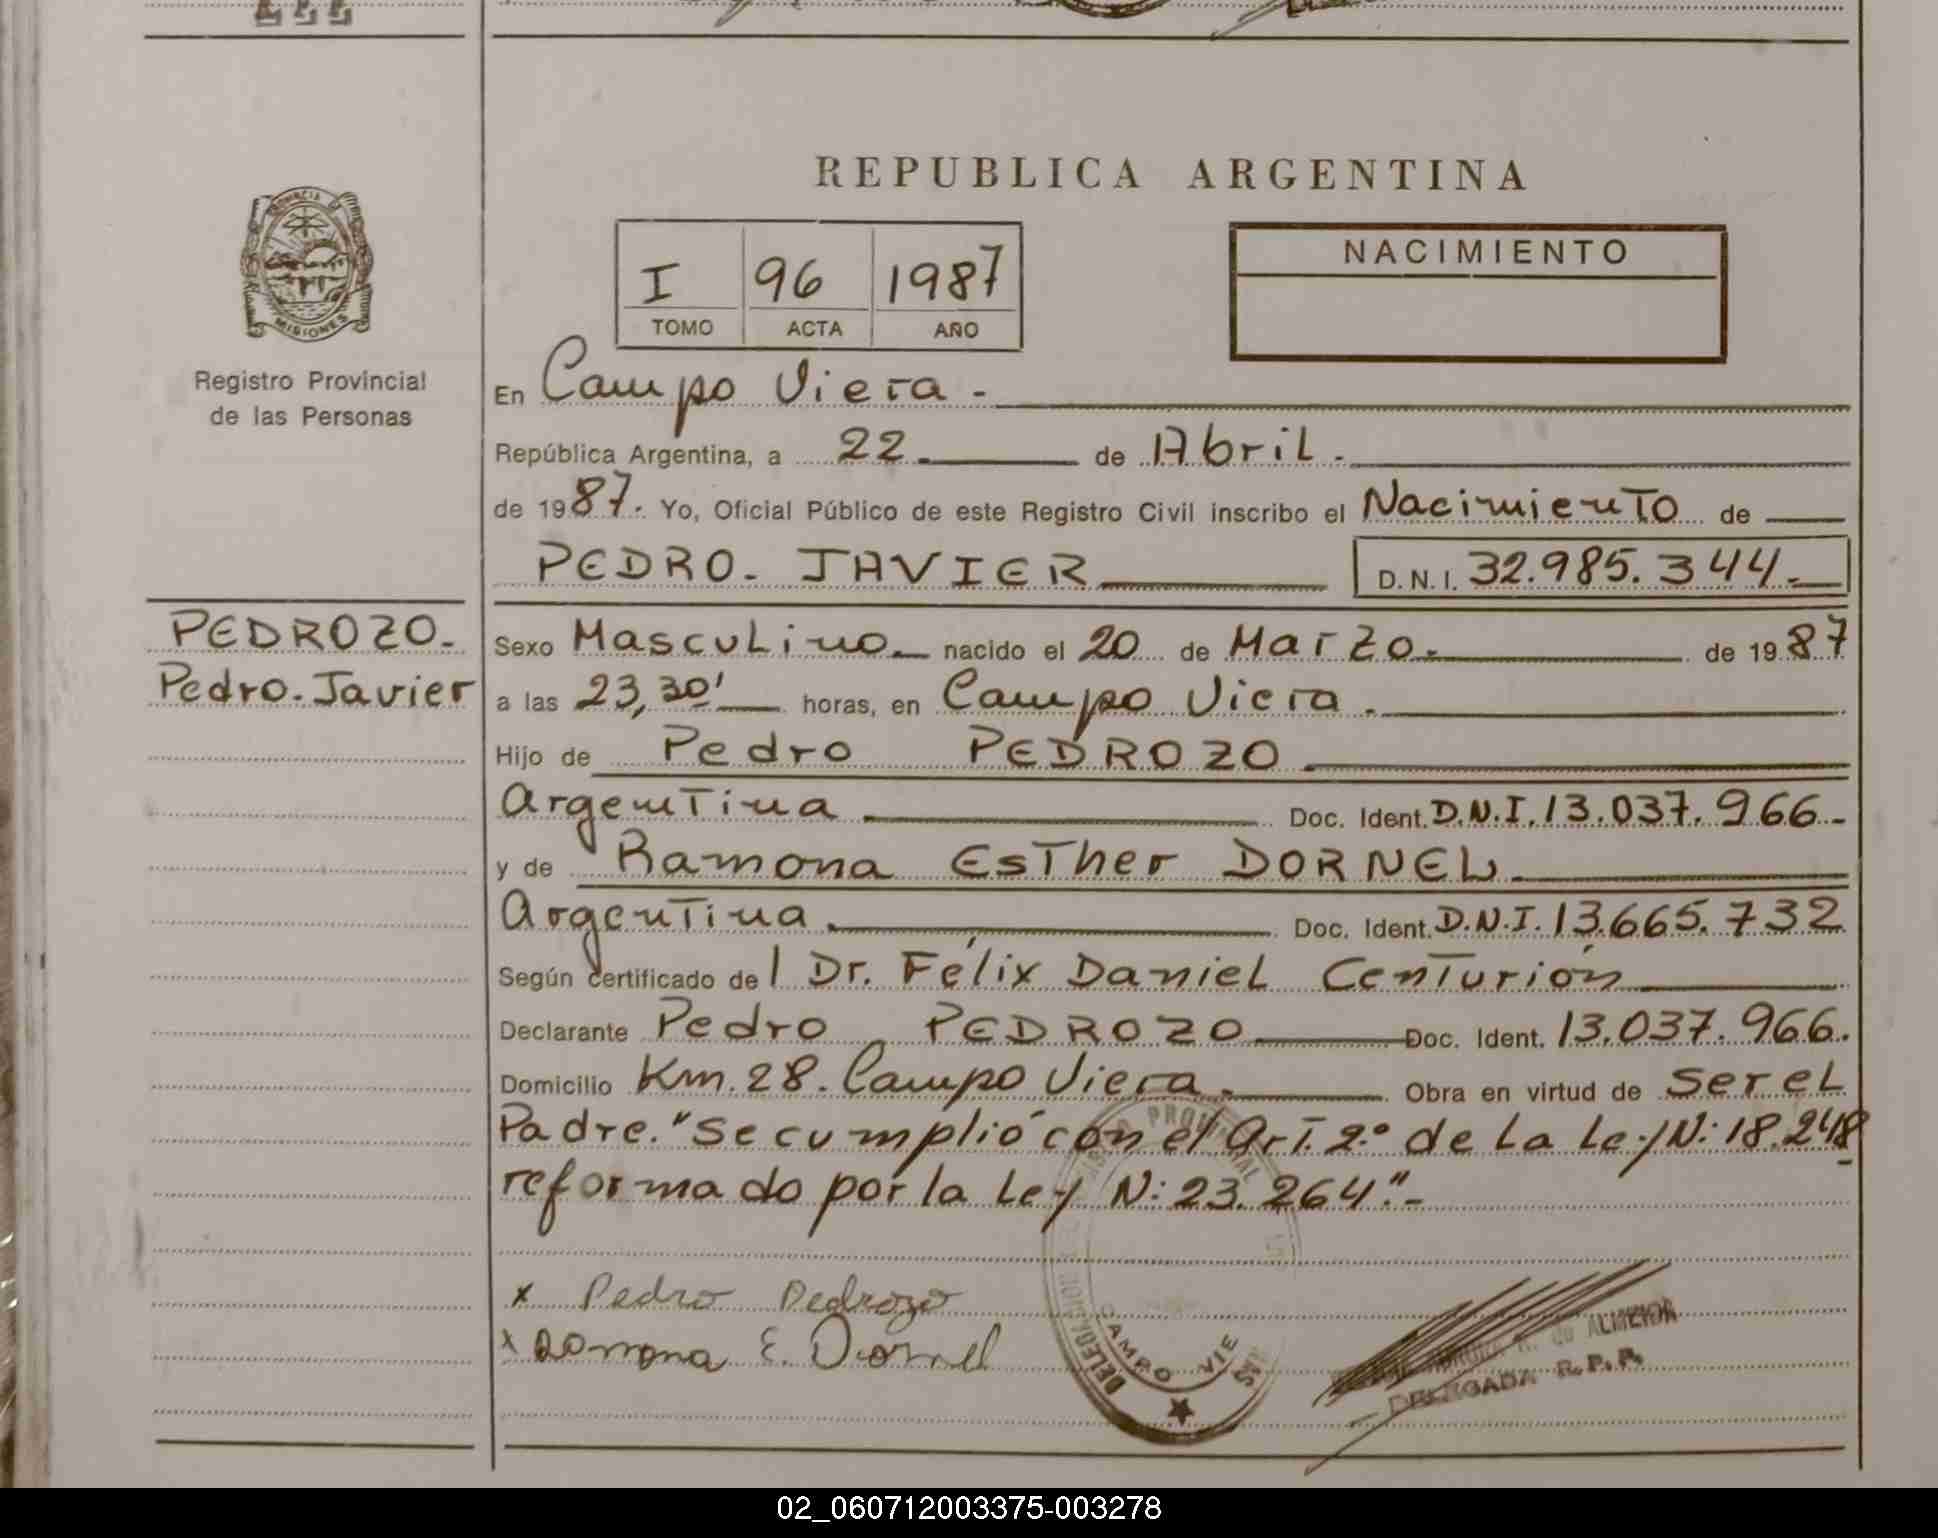 REPUBLICA ARGENTINA
PROVINCIA
MISIONES
I 96 1987
TOMO ACTA AÑO
NACIMIENTO
Registro Provincial
de las Personas
En Campo Viera.-
República Argentina, a 22 de Abril.
de 1987. Yo, Oficial Público de este Registro Civil inscribo el Nacimiento de
PEDRO. JAVIER D.N.I. 32.985.344.-
PEDROZO.
Pedro. Javier
Sexo Masculino nacido el 20 de Marzo. de 1987
a las 23,30' horas, en Campo Viera.
Hijo de Pedro PEDROZO
Argentina Doc. Ident. D.N.I. 13.037.966-
y de Ramona Esther DORNEL
Argentina Doc. Ident. D.N.I. 13.665.732
Según certificado del Dr. Félix Daniel Centurión
Declarante Pedro PEDROZO Doc. Ident. 13.037.966.
Domicilio Km. 28. Campo Viera. Obra en virtud de ser el
Padre. "Se cumplió con el Art. 2.º de la Ley N: 18.248
reformado por la Ley N: 23.264".-
x Pedro Pedrozo
x Ramona E. Dornel
CAMPO VIE
de ALMEIDA
DELEGADA R.P.P.
02_060712003375-003278